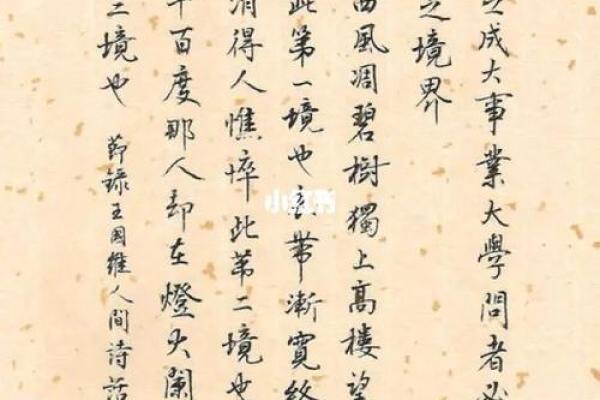 之成大事業大學問者必
之境界
西風凋碧樹獨上高樓望
此第一境也衣帶漸寬終
消得人憔悴此第二境也
千百度那人却在燈火闌
三境也 節錄王國維人間詩話
小红书